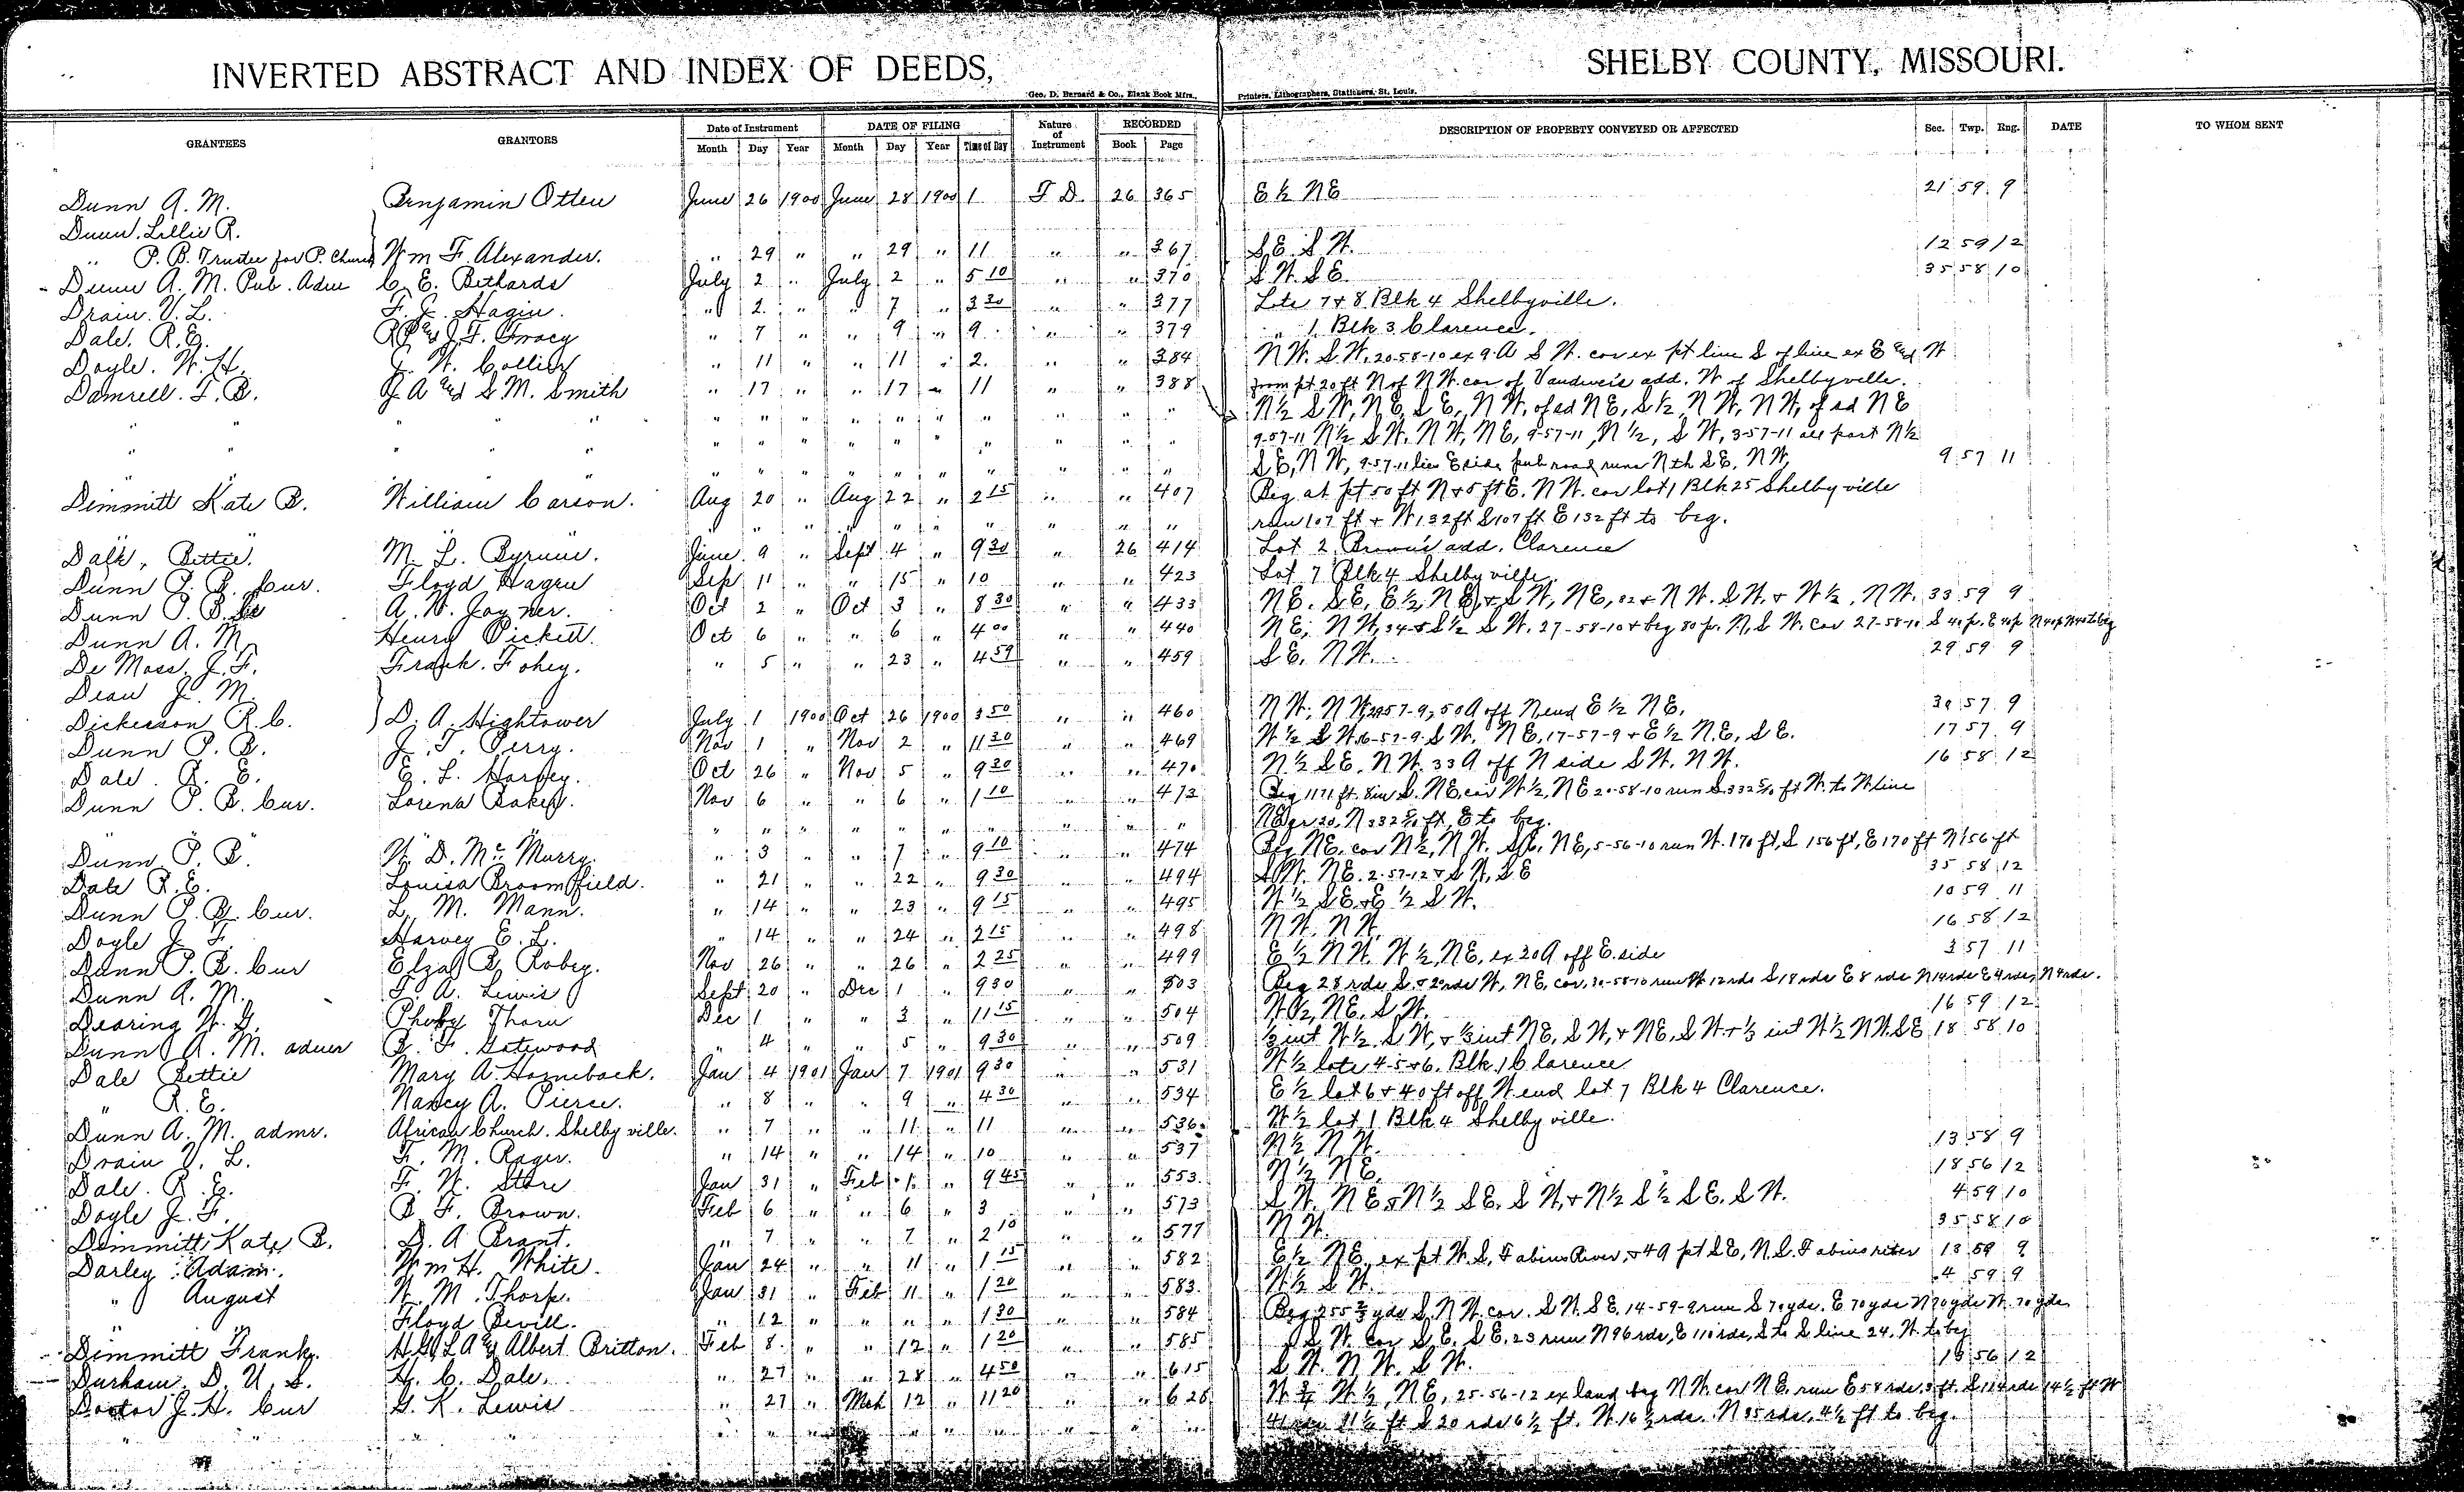 INVERTED ABSTRACT AND INDEX OF DEEDS, SHELBY COUNTY, MISSOURI.
Geo. D. Barnard & Co., Blank Book Mfrs., Printers, Lithographers, Stationers, St. Louis.
GRANTEES GRANTORS Date of Instrument DATE OF FILING Nature of Instrument RECORDED DESCRIPTION OF PROPERTY CONVEYED OR AFFECTED Sec. Twp. Rng. DATE TO WHOM SENT
Month Day Year Month Day Year Time of Day Book Page
Dunn A. M. Benjamin Otten June 26 1900 June 28 1900 1 T D 26 365 E ½ NE 21 59 9
Dunn Lillie R.
" P. B. Trustee for P. Church Wm F. Alexander. " 29 " " 29 " 11 " " 367 S.E. S.W. 12 59 12
Dunn A. M. Pub. Adm C. E. Bethards July 2 " July 2 " 5 10 " " 370 S.W. S.E. 35 58 10
Drain V. L. F. J. Hagin. " 2 " " 7 " 3 30 " " 377 Lots 7 & 8 Blk 4 Shelbyville.
Dale. R. E. J. F. Tracy " 7 " " 9 " 9 " " 379 " 1 Blk 3 Clarence.
Doyle. W. H. J. W. Collier " 11 " " 11 " 2. " " 384 NW. S.W. 20-58-10 ex 9 A S W. cor ex pt line S of line ex E and W
Damrell. F. B. J A and S M. Smith " 17 " " 17 " 11 " " 388 from pt 20 ft N of N W. cor of Vandiver's add. W of Shelbyville.
" " " " " " " " " " " " " " N½ S W, N E, S E, N W, of sd N E, S ½, N W, N W, of sd N E
" " " " " " " " " " " " " " 9-57-11 N½ S W. N W, N E, 9-57-11, N ½, S W, 3-57-11 all part N½
" " " " " " " " " " " " S E, N W, 9-57-11 lies E side pub road runs Nth S E. N W, 9 57 11
Dimmitt Kate B. William Carson. Aug 20 " Aug 22 " 2 15 " " 407 Beg at pt 50 ft N & 5 ft E. N W. cor lot 1 Blk 25 Shelbyville
" " " " " " " " " " run 107 ft & W 132 ft S 107 ft E 132 ft to beg.
Dalk, Bettie. M. L. Byrum. June 9 " Sept 4 " 9 30 " 26 414 Lot 2 Brown's add. Clarence
Dunn P. B. Cur. Floyd Hagen Sep 11 " " 15 " 10 " " 423 Lot 7 Blk 4 Shelbyville.
Dunn P. B. A. W. Joyner. Oct 2 " Oct 3 " 8 30 " " 433 N E. S E, E ½, N E, & S W, N E, 32 & N W. S W. & W ½, N W. 33 59 9
Dunn A. M. Henry Pickett. Oct 6 " " 6 " 4 00 " " 440 N E; N W, 34 & S ½ S W. 27-58-10 & beg 80 p. N, S W. cor 27-58-10 S 40 p. E 40 p N 40 p W 40 to beg
De Moss, J. F. Frank. Fohey. " 5 " " 23 " 4 59 " " 459 S E. N W. 29 59 9
Dean J. M.
Dickerson R. C. D. A. Hightower July 1 1900 Oct 26 1900 3 50 " " 460 N W. N W, 29-57-9, 50 A off N end E ½ N E. 30 57 9
Dunn P. B. J. T. Perry. Nov 1 " Nov 2 " 11 30 " " 469 W ½ S W 16-57-9. S W. N E, 17-57-9 & E ½ N. E, S E. 17 57 9
Dale. R. E. E. L. Harvey. Oct 26 " Nov 5 " 9 30 " " 470 N. ½ S E. N W. 33 A off N side S W. N W. 16 58 12
Dunn P. B. Cur. Lorena Baker. Nov 6 " " 6 " 1 10 " " 473 Beg 1171 ft. 8 in S. N E, cor W ½, N E 20-58-10 run S 332 5/10 ft W. to W line
" " " " " " " " " " N E qr 20, N 332 5/10 ft, E to beg.
Dunn P. B. W. D. McMurry. " 3 " " 7 " 9 10 " " 474 Beg N E. cor N ½, N W. S E, N E, 5-56-10 run W. 170 ft, S 156 ft, E 170 ft N 156 ft
Dale R. E. Louisa Broomfield. " 21 " " 22 " 9 30 " " 494 S W. N E. 2-57-12 & S W, S E 35 58 12
Dunn P. B. Cur. L. M. Mann. " 14 " " 23 " 9 15 " " 495 W ½ S E & E ½ S W. 10 59 11
Doyle J. F. Harvey E. L. " 14 " " 24 " 2 15 " " 498 N W. N W. 16 58 12
Dunn P. B. Cur Elza B. Robey. Nov 26 " " 26 " 2 25 " " 499 E ½ N W. W ½, N E, ex 20 A off E. side 3 57 11
Dunn A. M. T. A. Lewis Sept 20 " Dec 1 " 9 30 " " 503 Beg 28 rds S & 2 rds W, N E, cor, 30-58-10 run W 12 rds S 18 rds E 8 rds N 14 rds E 4 rds, N 4 rds.
Dearing W. G. Phoby Thorn Dec 1 " " 3 " 11 15 " " 504 W ½, N E, S W. 16 59 12
Dunn A. M. admr B. F. Gatewood " 4 " " 5 " 9 30 " " 509 ⅓ int W ½. S W, & ⅓ int N E, S W, & N E, S W. & ⅓ int W ½ N W. S E 18 58 10
Dale Bettie Mary A. Horneback. Jan 4 1901 Jan 7 1901 9 30 " " 531 W ½ lots 4-5 & 6. Blk. 1 Clarence
" R. E. Nancy A. Pierce. " 8 " " 9 " 4 30 " " 534 E ½ lot 6 & 40 ft off W. end lot 7 Blk 4 Clarence.
Dunn A. M. admr. African Church. Shelbyville. " 7 " " 11 " 11 " " 536 W ½ lot 1 Blk 4 Shelbyville.
Drain V. L. F. M. Rager. " 14 " " 14 " 10 " " 537 N ½ N W. 13 58 9
Dale. R. E. F. W. Stone Jan 31 " Feb 1 " 9 45 " " 553 N ½ N E. 18 56 12
Doyle J. F. B. F. Brown. Feb 6 " " 6 " 3 " " 573 S W. N E & N ½ S E. S W, & N ½ S ½ S E. S W. 4 59 10
Dimmitt, Kate B. D. A Brant. " 7 " " 7 " 2 10 " " 577 N W. 35 58 10
Darley Adam. Wm H. White. Jan 24 " " 11 " 1 15 " " 582 E ½ N E, ex pt W. S, Fabius River, & 4 A pt S E, N. S. Fabius river 13 59 9
" August W. M. Thorp. Jan 31 " Feb 11 " 1 20 " " 583 W ½ S W. 4 59 9
" " Floyd Bevill. " 12 " " " " 1 30 " " 584 Beg 255 ⅔ yds S, N W. cor. S W. S E. 14-59-9 run S 70 yds. E 70 yds N 70 yds W. 70 yds
Dimmitt Frank. Albert Britton. Feb 8 " " 12 " 1 20 " " 585 S W. cor S E. S E. 23 run N 96 rds, E 110 rds, S to S line 24, W. to beg
Durham. D. U. S. H. C. Dale. " 27 " " 28 " 4 50 " " 615 S W. N W. S W. 18 56 12
Doctor J. H. Cur G. K. Lewis " 27 " Mch 12 " 11 20 " " 628 W ¾ W ½, N E, 25-56-12 ex land beg N W. cor N E. run E 58 rds, 3 ft. S 124 rds 14 ½ ft W
" " " " " " " " " " " 41 rds 11 ½ ft S 20 rds 6 ½ ft. W. 16 ½ rds. N 35 rds, 4 ½ ft to beg.